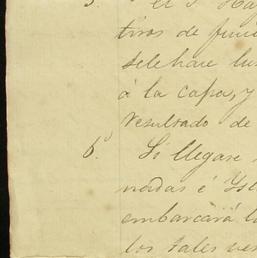 5. El S. Ha
tiros de fusil
se le hace lu
á la capa, y
resultado de
6. Si llegase
nadas é Ysl
embarcará l
los tales ve